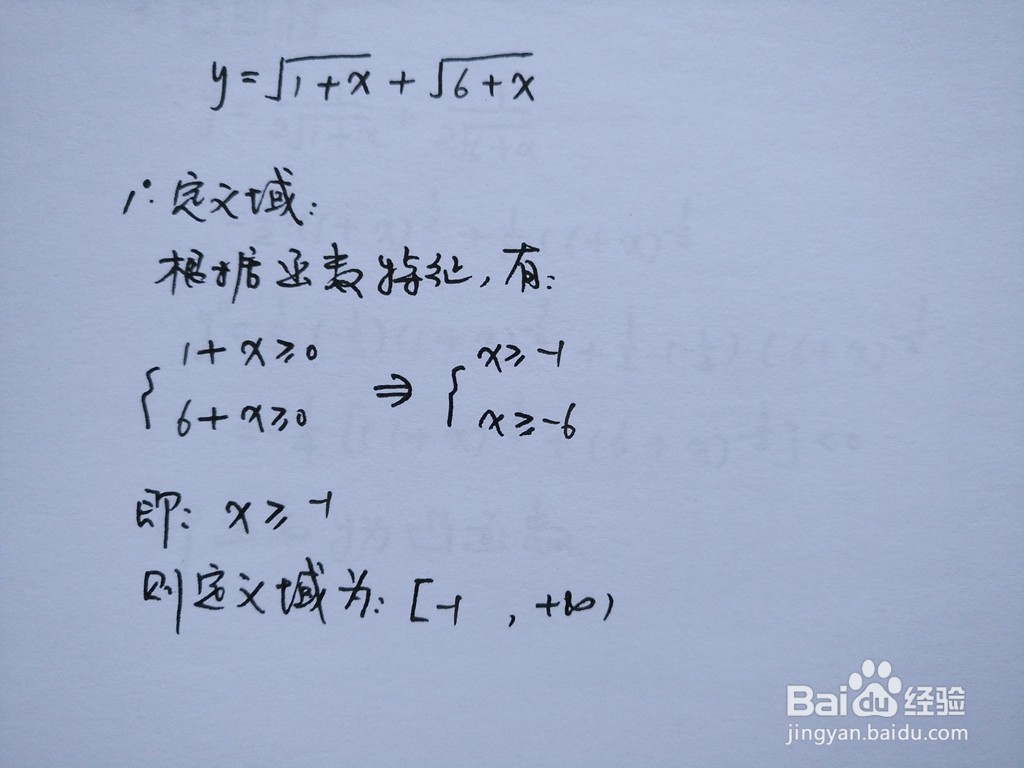 y = √1+x + √6+x
1°. 定义域:
根据函数特征, 有:
{ 1+x≥0 ⇒ { x≥-1
6+x≥0 x≥-6
即: x≥-1
则定义域为: [-1 , +∞)
Bai du 经验
jingyan.baidu.com